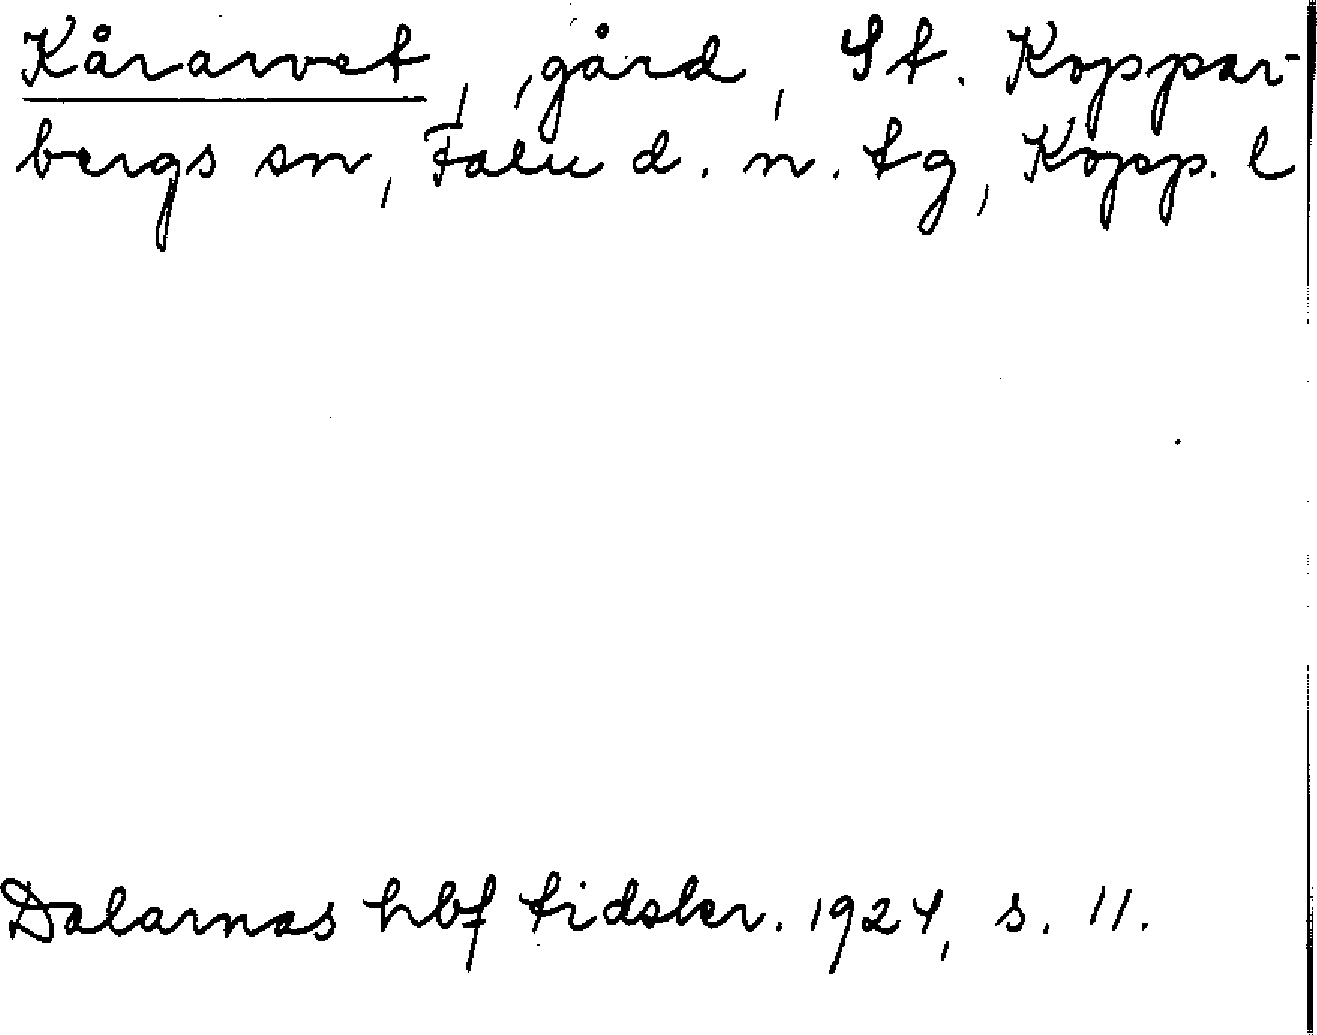 Kårarvet, gård, St. Koppar-
bergs sn, Falu d. n. tg, Kopp. l
Dalarnas hbf tidskr. 1924, s. 11.